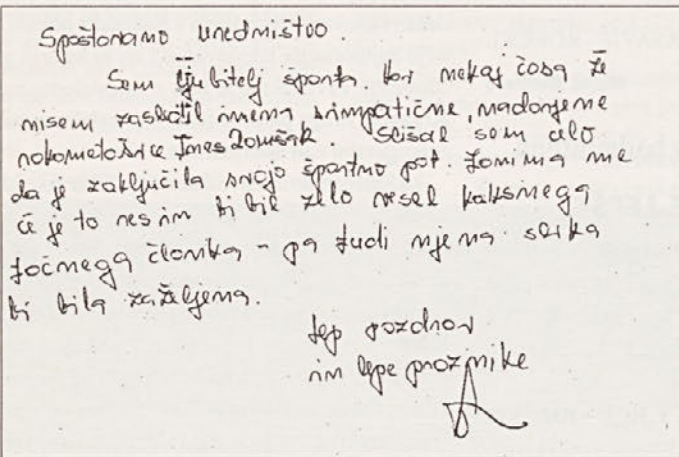 Spoštovano uredništvo.
Sem ljubitelj športa. Ker nekaj časa že
nisem zasledil imena simpatične, nadarjene
rokometašice Ines Zomšak. Slišal sem celo
da je zaključila svojo športno pot. Zanima me
če je to res in bi bil zelo vesel kakšnega
točnega članka - pa tudi njena slika
bi bila zaželjena.
lep pozdrav
in lepe praznike